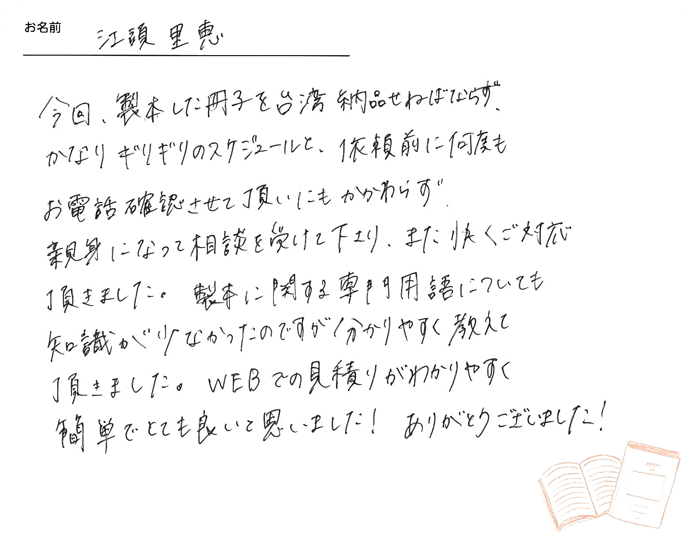 お名前 江頭 里恵
今回、製本した冊子を台湾納品せねばならず、
かなりギリギリのスケジュールと、依頼前に何度も
お電話確認させて頂いにもかかわらず、
親身になって相談を受けて下さり、また快くご対応
頂きました。製本に関する専門用語についても
知識が少なかったのですが分かりやすく教えて
頂きました。WEBでの見積りがわかりやすく
簡単でとても良いと思いました！ ありがとうございました！